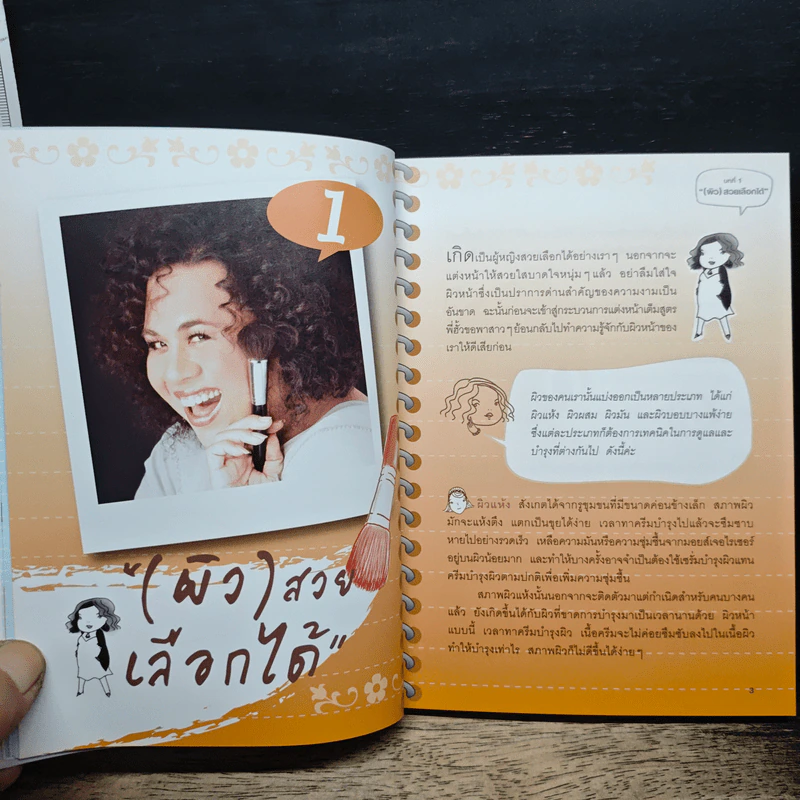 1
"(ผิว) สวย
เลือกได้"
บทที่ ๑
"(ผิว) สวยเลือกได้"
เกิดเป็นผู้หญิงสวยเลือกได้อย่างเราๆ นอกจากจะ
แต่งหน้าให้สวยใสบาดใจหนุ่มๆ แล้ว อย่าลืมใส่ใจ
ผิวหน้าซึ่งเป็นปราการด่านสำคัญของความงามเป็น
อันขาด ฉะนั้นก่อนจะเข้าสู่กระบวนการแต่งหน้าเต็มสูตร
พี่ฮั้วขอพาสาวๆ ย้อนกลับไปทำความรู้จักกับผิวหน้าของ
เราให้ดีเสียก่อน
ผิวของคนเรานั้นแบ่งออกเป็นหลายประเภท ได้แก่
ผิวแห้ง ผิวผสม ผิวมัน และผิวบอบบางแพ้ง่าย
ซึ่งแต่ละประเภทก็ต้องการเทคนิคในการดูแลและ
บำรุงที่ต่างกันไป ดังนี้ค่ะ
ผิวแห้ง สังเกตได้จากรูขุมขนที่มีขนาดค่อนข้างเล็ก สภาพผิว
มักจะแห้งตึง แตกเป็นขุยได้ง่าย เวลาทาครีมบำรุงไปแล้วจะซึมซาบ
หายไปอย่างรวดเร็ว เหลือความมันหรือความชุ่มชื้นจากมอยส์เจอไรเซอร์
อยู่บนผิวน้อยมาก และทำให้บางครั้งอาจจำเป็นต้องใช้เซรั่มบำรุงผิวแทน
ครีมบำรุงผิวตามปกติเพื่อเพิ่มความชุ่มชื้น
สภาพผิวแห้งนั้นนอกจากจะติดตัวมาแต่กำเนิดสำหรับคนบางคน
แล้ว ยังเกิดขึ้นได้กับผิวที่ขาดการบำรุงมาเป็นเวลานานด้วย ผิวหน้า
แบบนี้ เวลาทาครีมบำรุงผิว เนื้อครีมจะไม่ค่อยซึมซับลงไปในเนื้อผิว
ทำให้บำรุงเท่าไร สภาพผิวก็ไม่ดีขึ้นได้ง่ายๆ
3